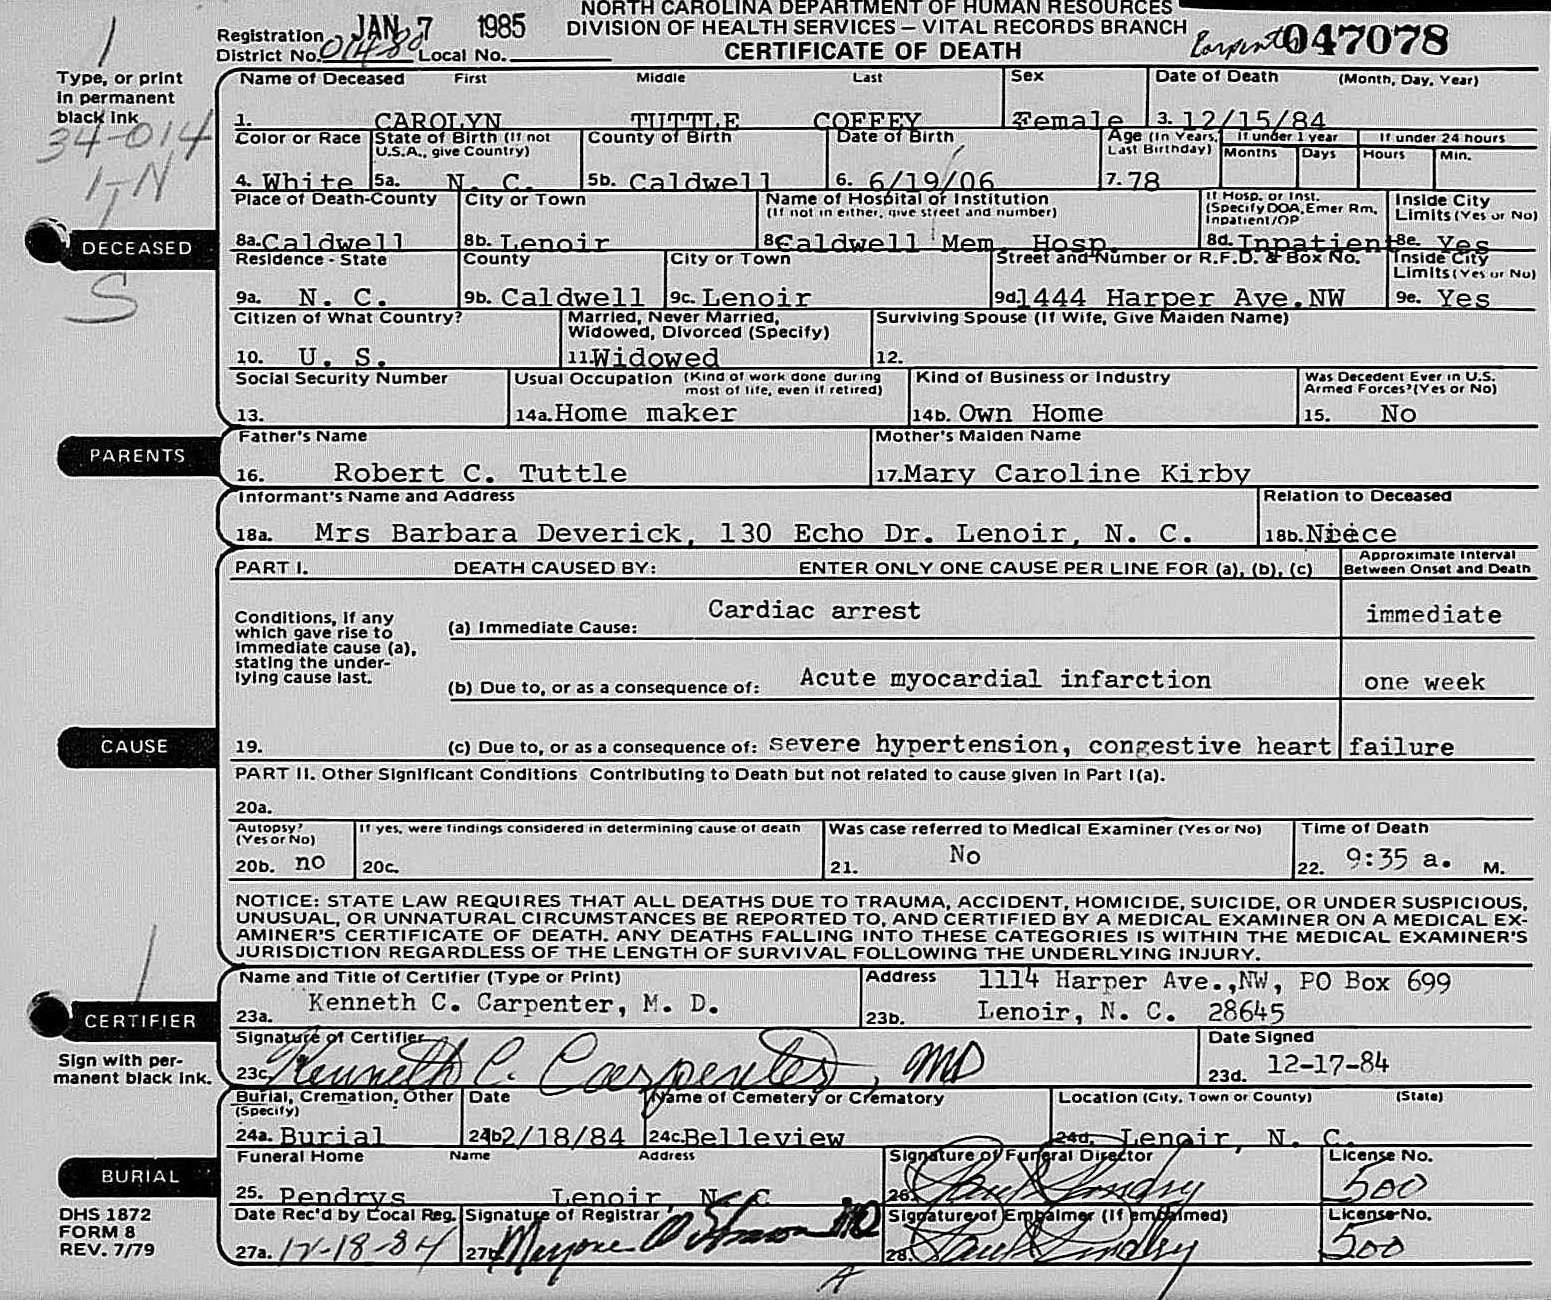 NORTH CAROLINA DEPARTMENT OF HUMAN RESOURCES
DIVISION OF HEALTH SERVICES – VITAL RECORDS BRANCH
CERTIFICATE OF DEATH
Registration District No. 014-80 Local No.
JAN 7 1985
Carpenter 047078
1
Type, or print in permanent black ink
34-014
Name of Deceased First Middle Last Sex Date of Death (Month, Day, Year)
1. CAROLYN TUTTLE COFFEY 2. Female 3. 12/15/84
Color or Race State of Birth (If not U.S.A., give Country) County of Birth Date of Birth Age (In Years, Last Birthday) If under 1 year If under 24 hours
Months Days Hours Min.
4. White 5a. N. C. 5b. Caldwell 6. 6/19/06 7. 78
Place of Death-County City or Town Name of Hospital or Institution (If not in either, give street and number) If Hosp. or Inst. (Specify DOA, Emer Rm, Inpatient/OP Inside City Limits (Yes or No)
DECEASED
8a. Caldwell 8b. Lenoir 8c. Caldwell Mem. Hosp. 8d. Inpatient 8e. Yes
Residence - State County City or Town Street and Number or R.F.D. & Box No. Inside City Limits (Yes or No)
S
9a. N. C. 9b. Caldwell 9c. Lenoir 9d. 1444 Harper Ave.NW 9e. Yes
Citizen of What Country? Married, Never Married, Widowed, Divorced (Specify) Surviving Spouse (If Wife, Give Maiden Name)
10. U. S. 11. Widowed 12.
Social Security Number Usual Occupation (Kind of work done during most of life, even if retired) Kind of Business or Industry Was Decedent Ever in U.S. Armed Forces? (Yes or No)
13. 14a. Home maker 14b. Own Home 15. No
PARENTS
Father's Name Mother's Maiden Name
16. Robert C. Tuttle 17. Mary Caroline Kirby
Informant's Name and Address Relation to Deceased
18a. Mrs Barbara Deverick, 130 Echo Dr. Lenoir, N. C. 18b. Niece
PART I. DEATH CAUSED BY: ENTER ONLY ONE CAUSE PER LINE FOR (a), (b), (c) Approximate Interval Between Onset and Death
Conditions, if any which gave rise to immediate cause (a), stating the underlying cause last.
(a) Immediate Cause: Cardiac arrest immediate
(b) Due to, or as a consequence of: Acute myocardial infarction one week
CAUSE
19. (c) Due to, or as a consequence of: severe hypertension, congestive heart failure
PART II. Other Significant Conditions Contributing to Death but not related to cause given in Part I(a).
20a.
Autopsy? (Yes or No) If yes, were findings considered in determining cause of death Was case referred to Medical Examiner (Yes or No) Time of Death
20b. no 20c. 21. No 22. 9:35 a. M.
NOTICE: STATE LAW REQUIRES THAT ALL DEATHS DUE TO TRAUMA, ACCIDENT, HOMICIDE, SUICIDE, OR UNDER SUSPICIOUS,
UNUSUAL, OR UNNATURAL CIRCUMSTANCES BE REPORTED TO, AND CERTIFIED BY A MEDICAL EXAMINER ON A MEDICAL EX-
AMINER'S CERTIFICATE OF DEATH. ANY DEATHS FALLING INTO THESE CATEGORIES IS WITHIN THE MEDICAL EXAMINER'S
JURISDICTION REGARDLESS OF THE LENGTH OF SURVIVAL FOLLOWING THE UNDERLYING INJURY.
Name and Title of Certifier (Type or Print) Address 1114 Harper Ave.,NW, PO Box 699
23a. Kenneth C. Carpenter, M. D. 23b. Lenoir, N. C. 28645
CERTIFIER
Sign with permanent black ink.
Signature of Certifier Date Signed
23c. Kenneth C. Carpenter, MD 23d. 12-17-84
Burial, Cremation, Other (Specify) Date Name of Cemetery or Crematory Location (City, Town or County) (State)
24a. Burial 24b. 12/18/84 24c. Belleview 24d. Lenoir, N. C.
BURIAL
Funeral Home Name Address Signature of Funeral Director License No.
25. Pendrys Lenoir N. C 26. 500
Date Rec'd by Local Reg. Signature of Registrar Signature of Embalmer (If embalmed) License No.
27a. 12-18-84 27b. 28. 500
DHS 1872
FORM 8
REV. 7/79